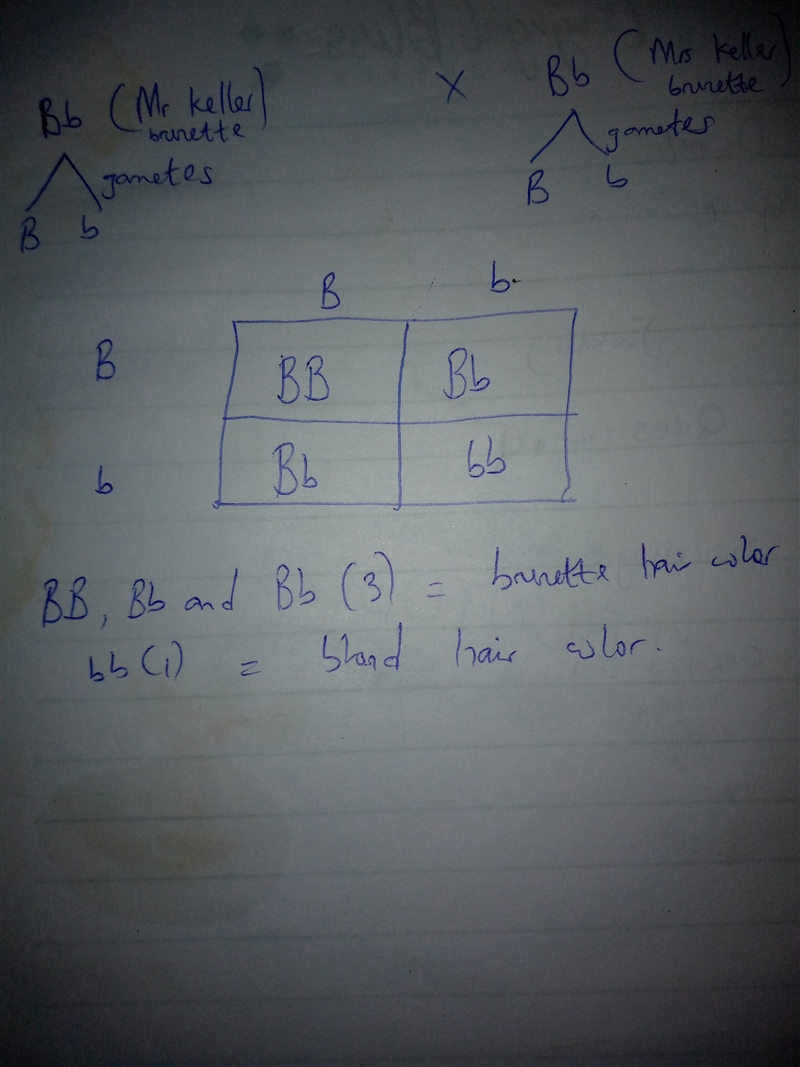 Bb (Mr keller) X Bb (Mrs keller)
brunette brunette
gametes gametes
B b B b
B b.
B BB Bb
b Bb bb
BB, Bb and Bb (3) = brunette hair color
bb (1) = blond hair color.